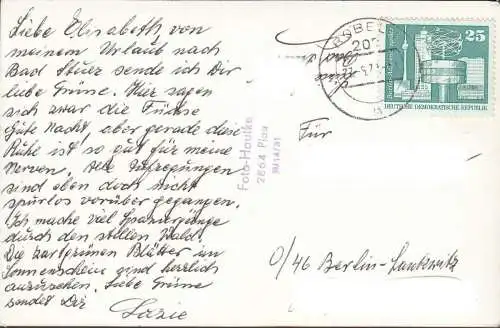 Liebe Elisabeth, von
meinem Urlaub nach
Bad Stuer sende ich Dir
liebe Grüße. Hier sagen
sich zwar die Füchse
Gute Nacht, aber gerade diese
Ruhe ist so gut für meine
Nerven. Alle Aufregungen
sind eben doch nicht
spurlos vorüber gegangen.
Ich mache viel Spaziergänge
durch den stillen Wald.
Die zartgrünen Blätter im
Sonnenschein sind herrlich
anzusehen. Liebe Grüße
sendet Dir
Foto-Haulke
2864 Plau
25
DEUTSCHE DEMOKRATISCHE REPUBLIK
Für
O/46 Berlin-Lankwitz